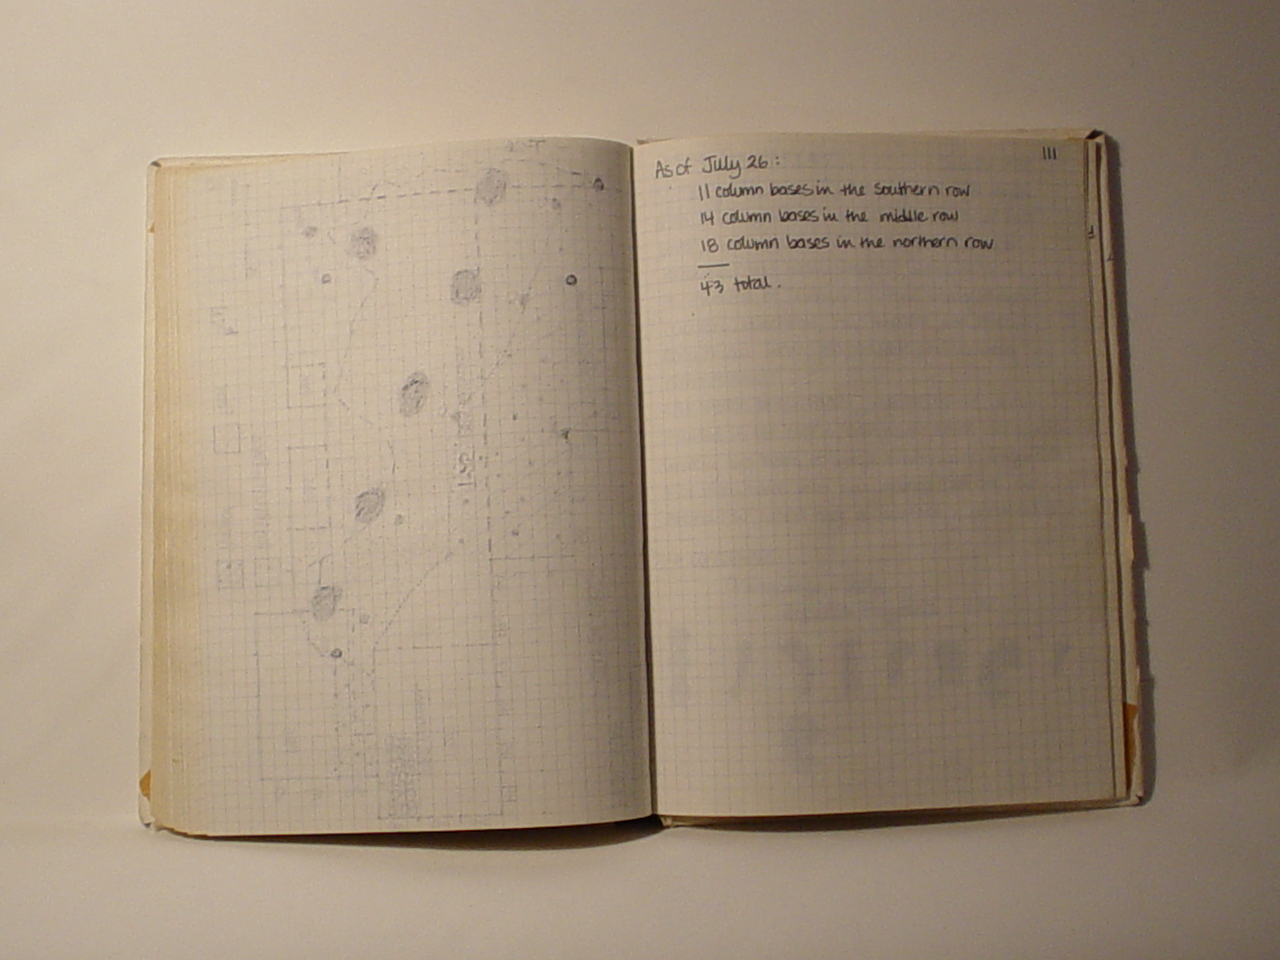 111
As of July 26:
11 column bases in the southern row
14 column bases in the middle row
18 column bases in the northern row
43 total.